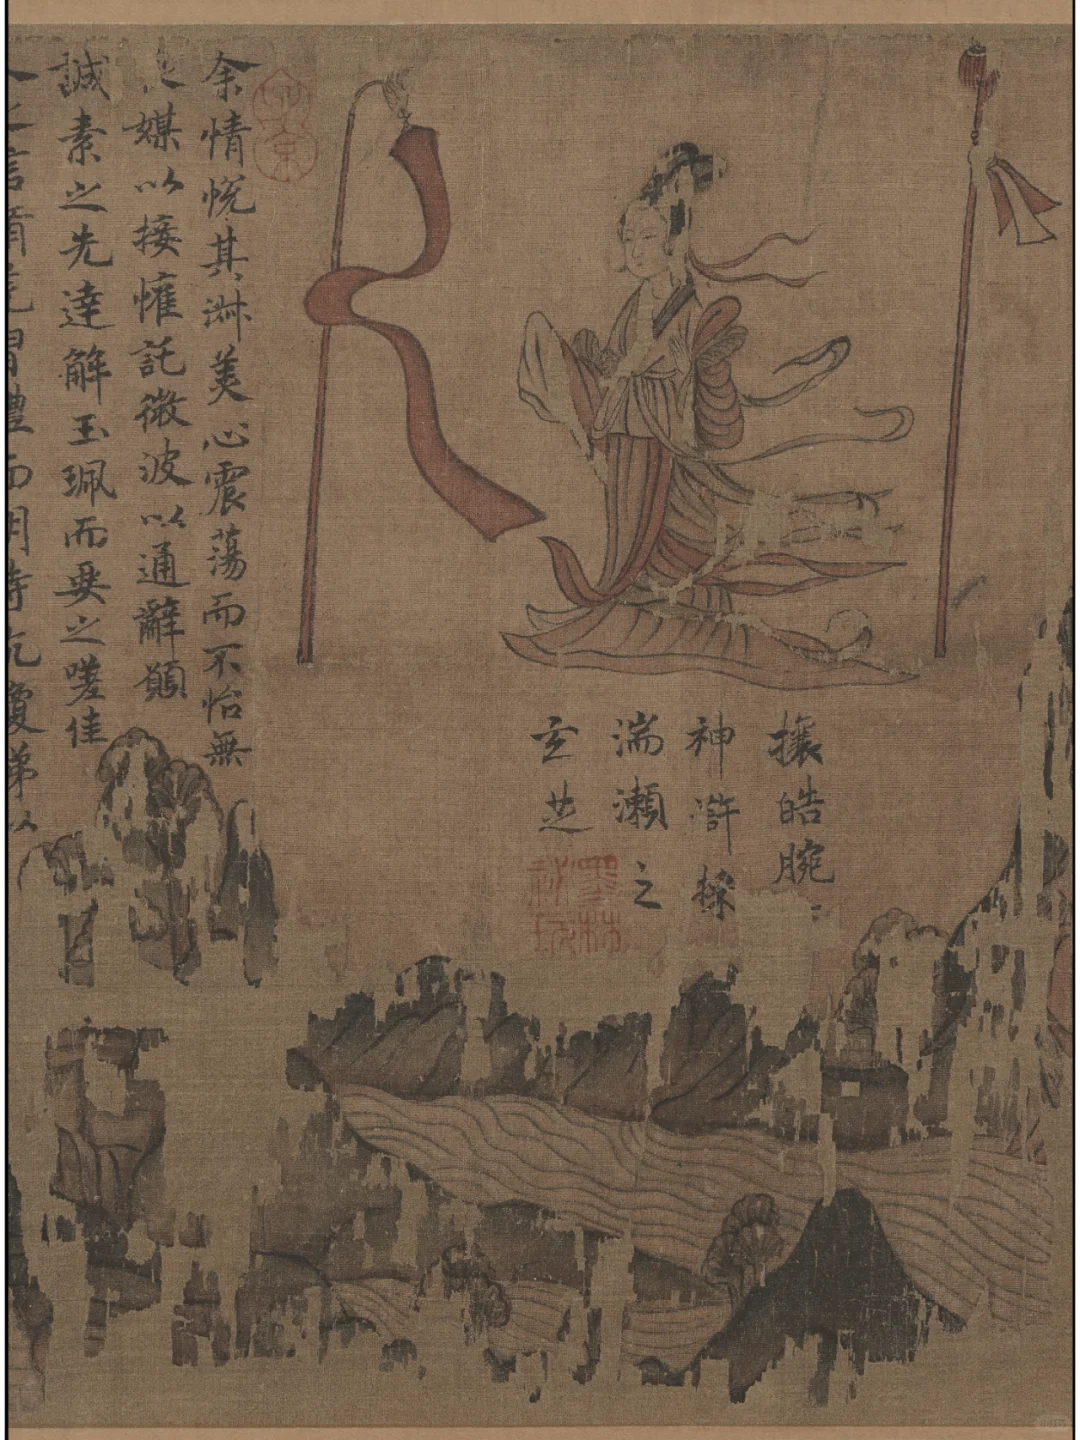 攘皓腕
神滸採
湍瀨之
玄芝
墨林祕玩
子京
余情悅其淋美心震蕩而不怡無
媒以接懽託微波以通辭願
誠素之先達解玉珮而要之嗟佳
人之信脩羌習禮而明詩抗瓊珶以